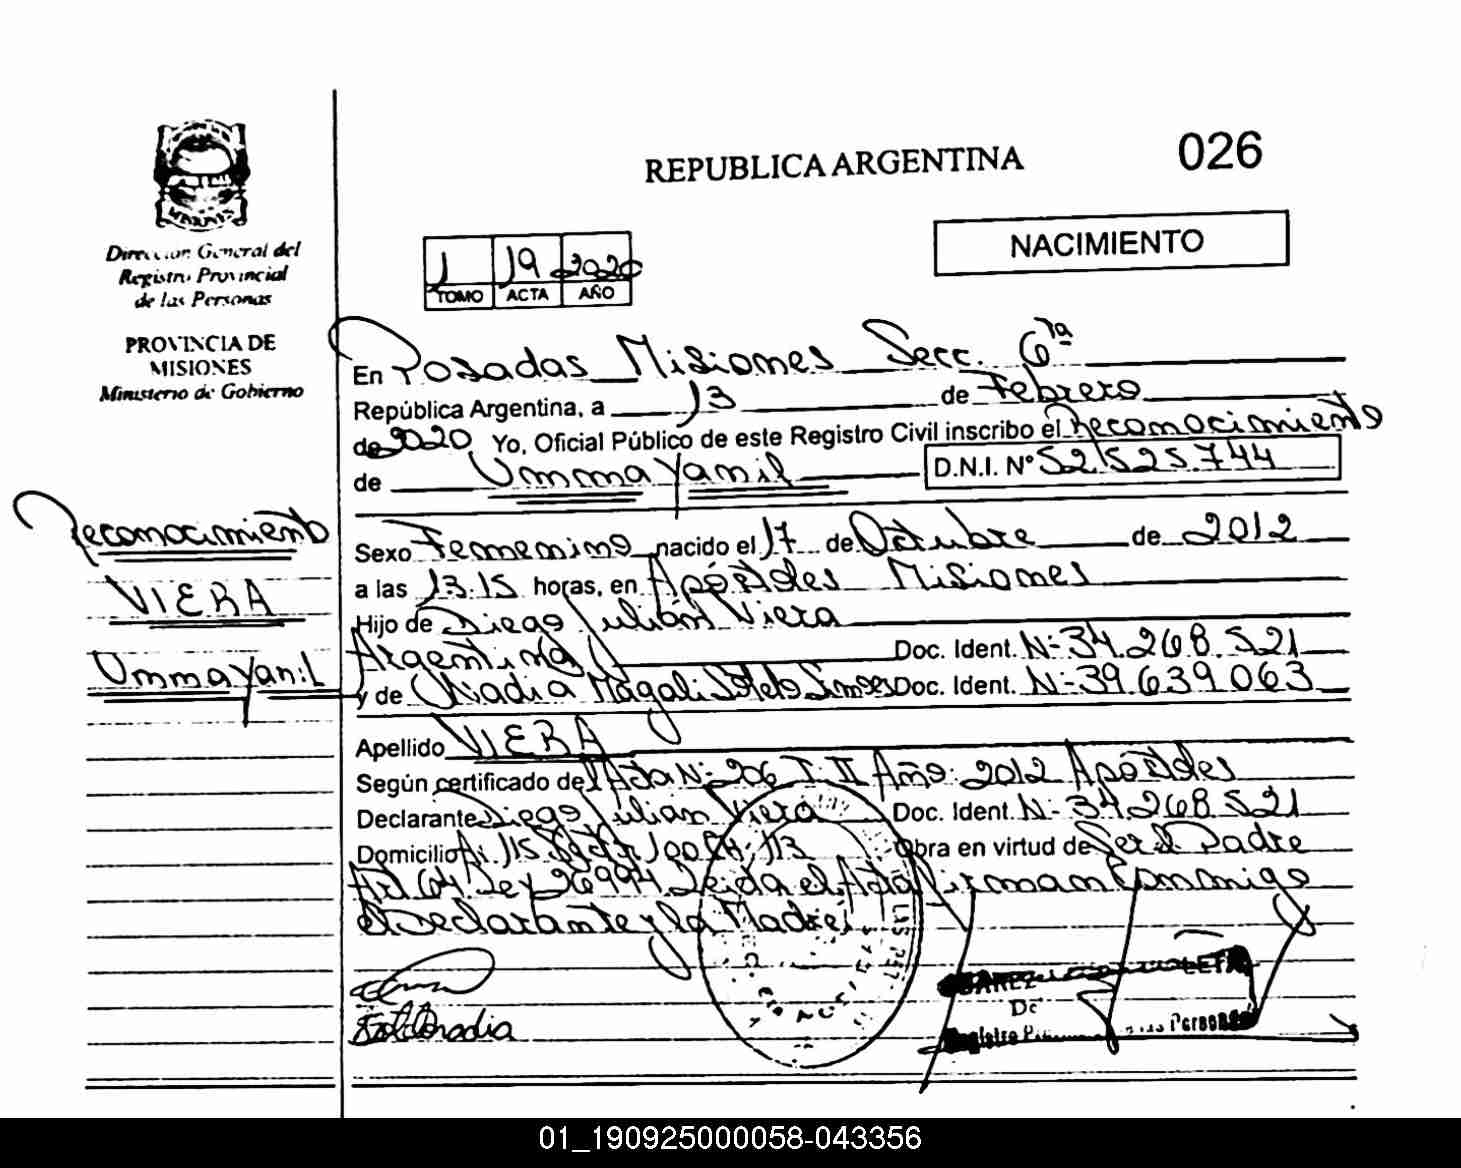 REPUBLICA ARGENTINA
026
NACIMIENTO
Dirección General del
Registro Provincial
de las Personas
PROVINCIA DE
MISIONES
Ministerio de Gobierno
1 19 2020
TOMO ACTA AÑO
En Posadas Misiones Secc. 6ta
República Argentina, a 13 de Febrero
de 2020 Yo, Oficial Público de este Registro Civil inscribo el Reconocimiento
de Umma Yanil D.N.I. Nº 52.525.744
Reconocimiento
VIERA
Umma Yanil
Sexo Femenino nacido el 17 de Octubre de 2012
a las 13.15 horas, en Apóstoles Misiones
Hijo de Diego Julián Viera
Argentina Doc. Ident. Nº 34.268.521
y de Nadia Magali Doc. Ident. Nº 39.639.063
Apellido VIERA
Según certificado del Acta Nº 206 T: II Año: 2012 Apóstoles
Declarante Diego Julian Viera Doc. Ident. Nº 34.268.521
Domicilio 115 Obra en virtud de Ser el Padre
Art 64 Ley 26994 Leida el Acta firman Conmigo
el Declarante y la Madre
Nadia
LAS PER
De
Registro las Personas
01_190925000058-043356